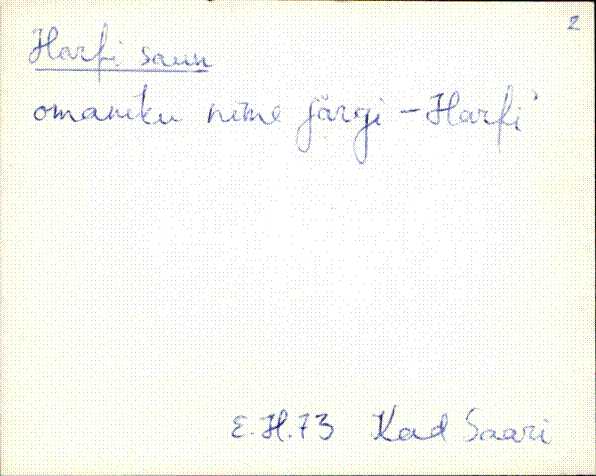 2
Harfi saun
omaniku nime järgi – Harfi
E.H.73 Kad Saari